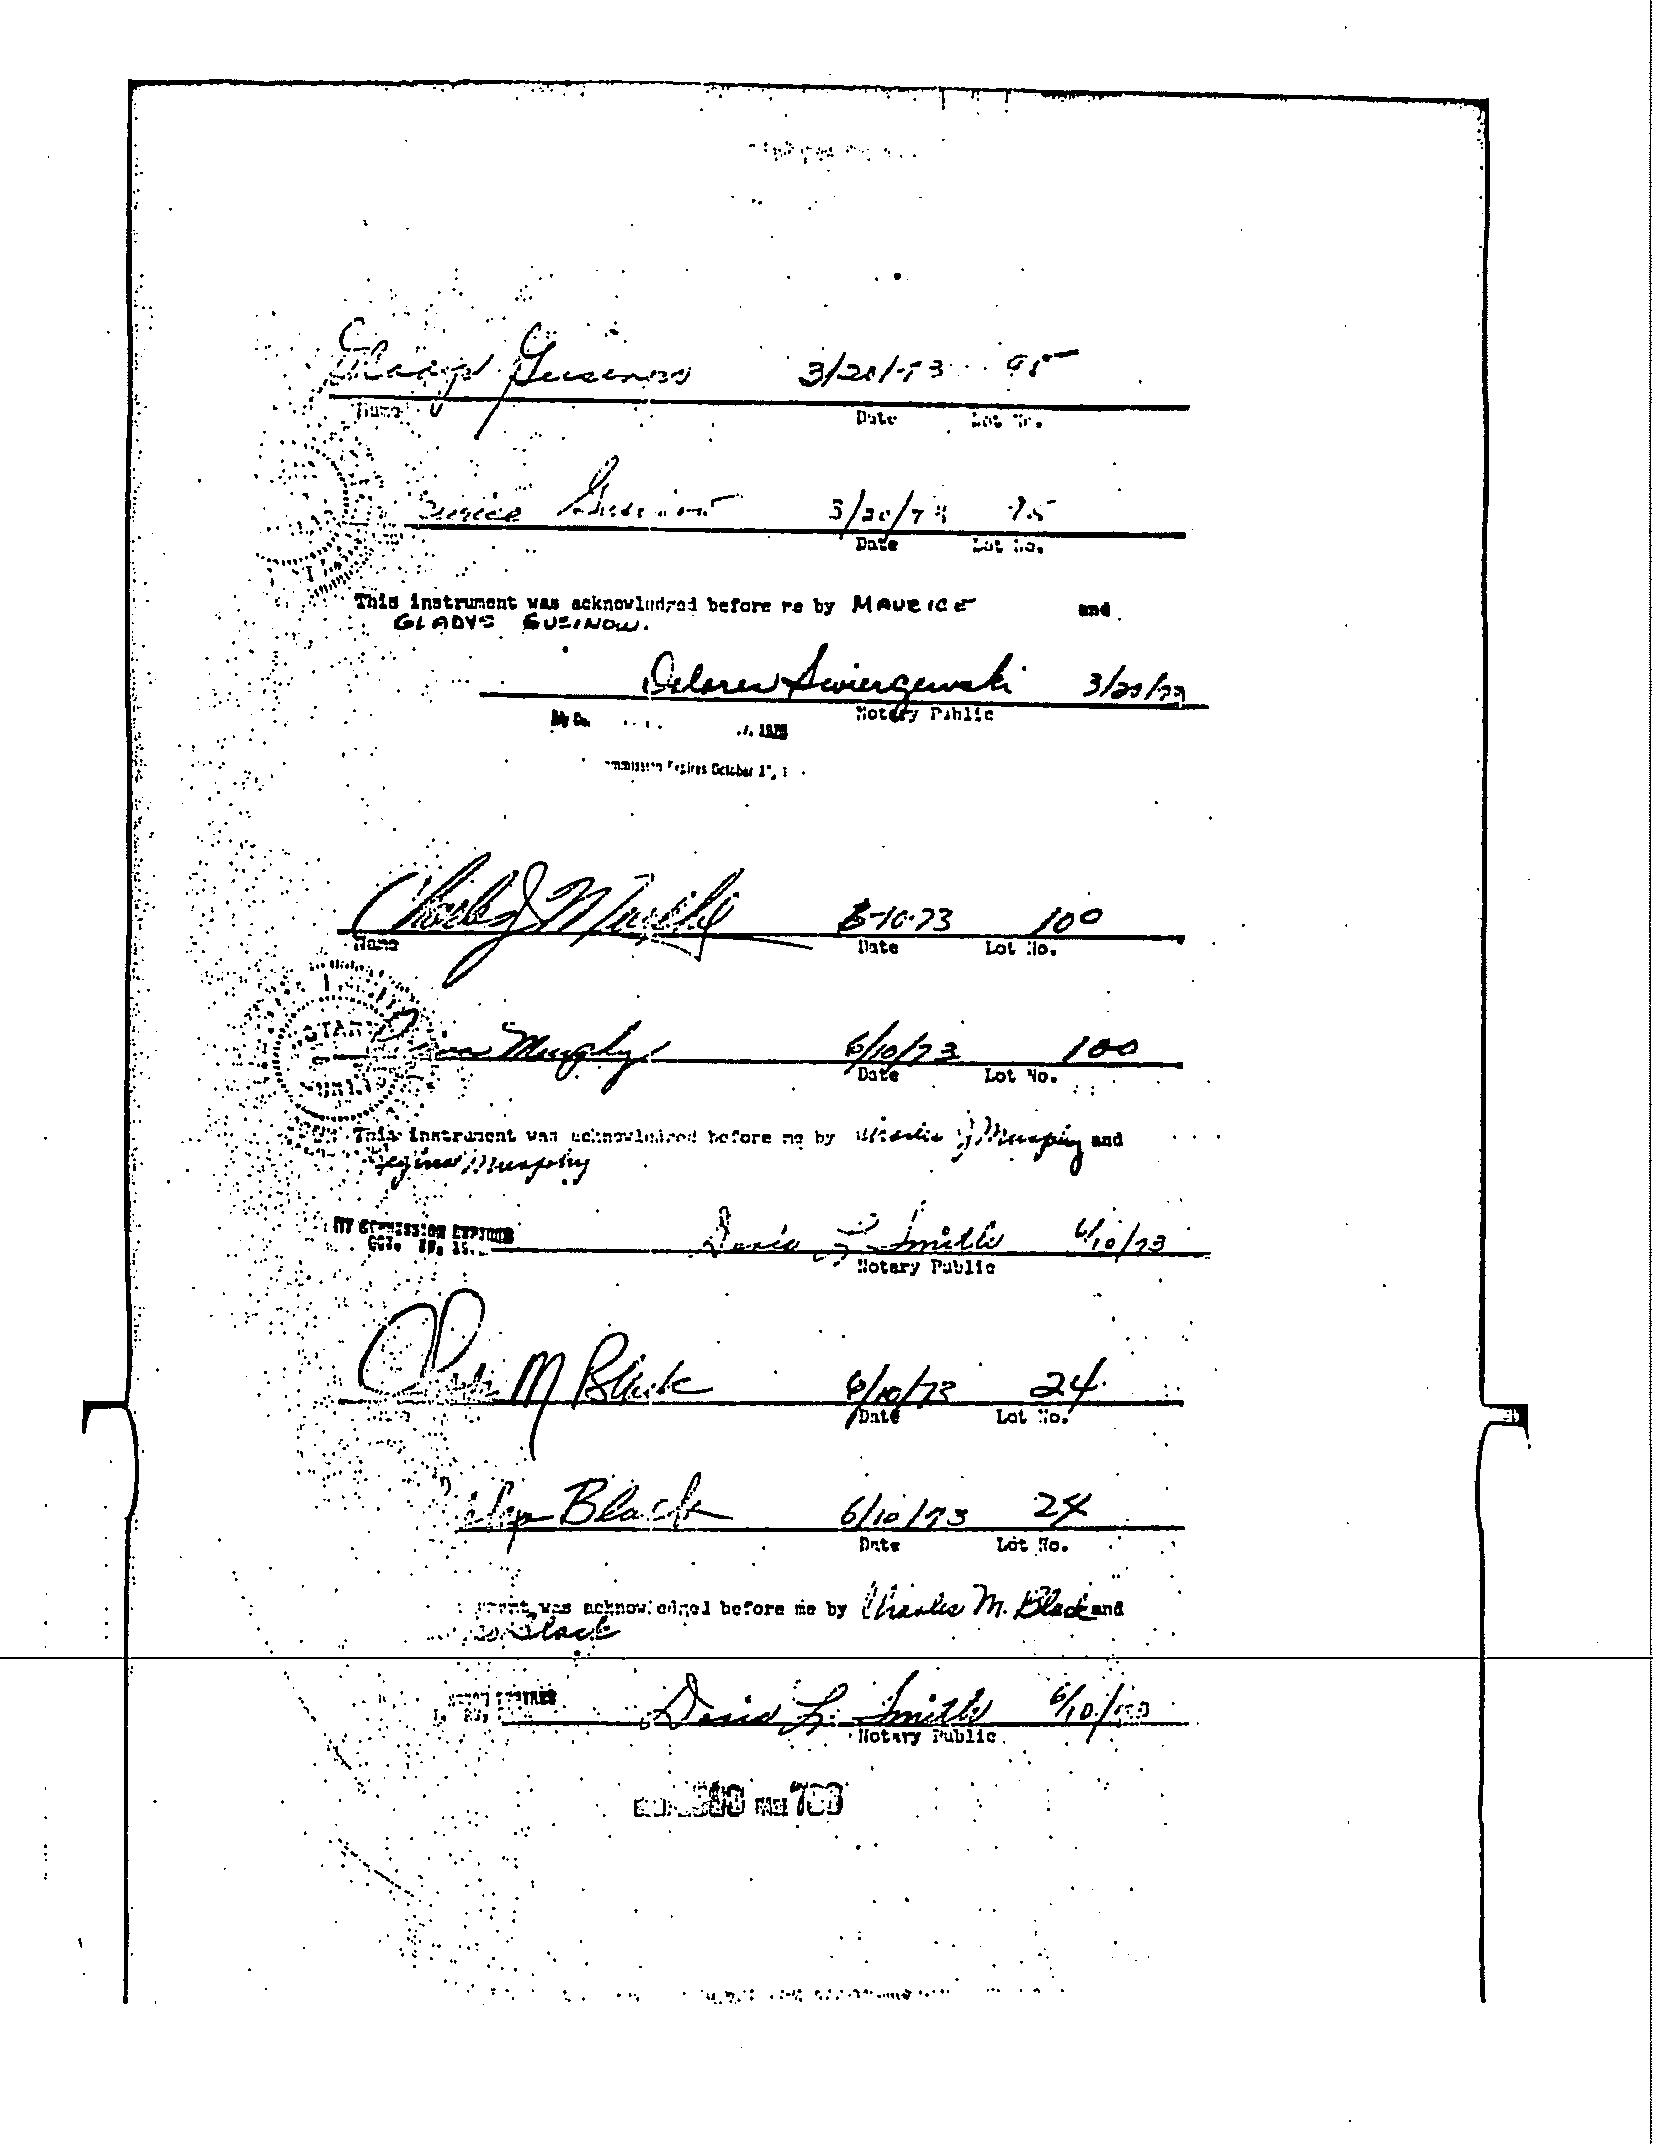 Gladys Gusinow 3/20/73 95
Name Date Lot No.
Gusinow 3/20/73 95
Date Lot No.
This instrument was acknowledged before me by MAURICE and
GLADYS GUSINOW.
Delores Swiergewski 3/20/73
Notary Public
My Co.
Commission Expires October
Charles J Murphy 6-10-73 100
Name Date Lot No.
Murphy 6/10/73 100
Date Lot No.
This instrument was acknowledged before me by Charles J Murphy and
Regina Murphy
MY COMMISSION EXPIRES
Doris L Smith 6/10/73
Notary Public
Charles M Black 6/10/73 24
Date Lot No.
Black 6/10/73 24
Date Lot No.
was acknowledged before me by Charles M. Black and
Black
EXPIRES
Doris L. Smith 6/10/73
Notary Public